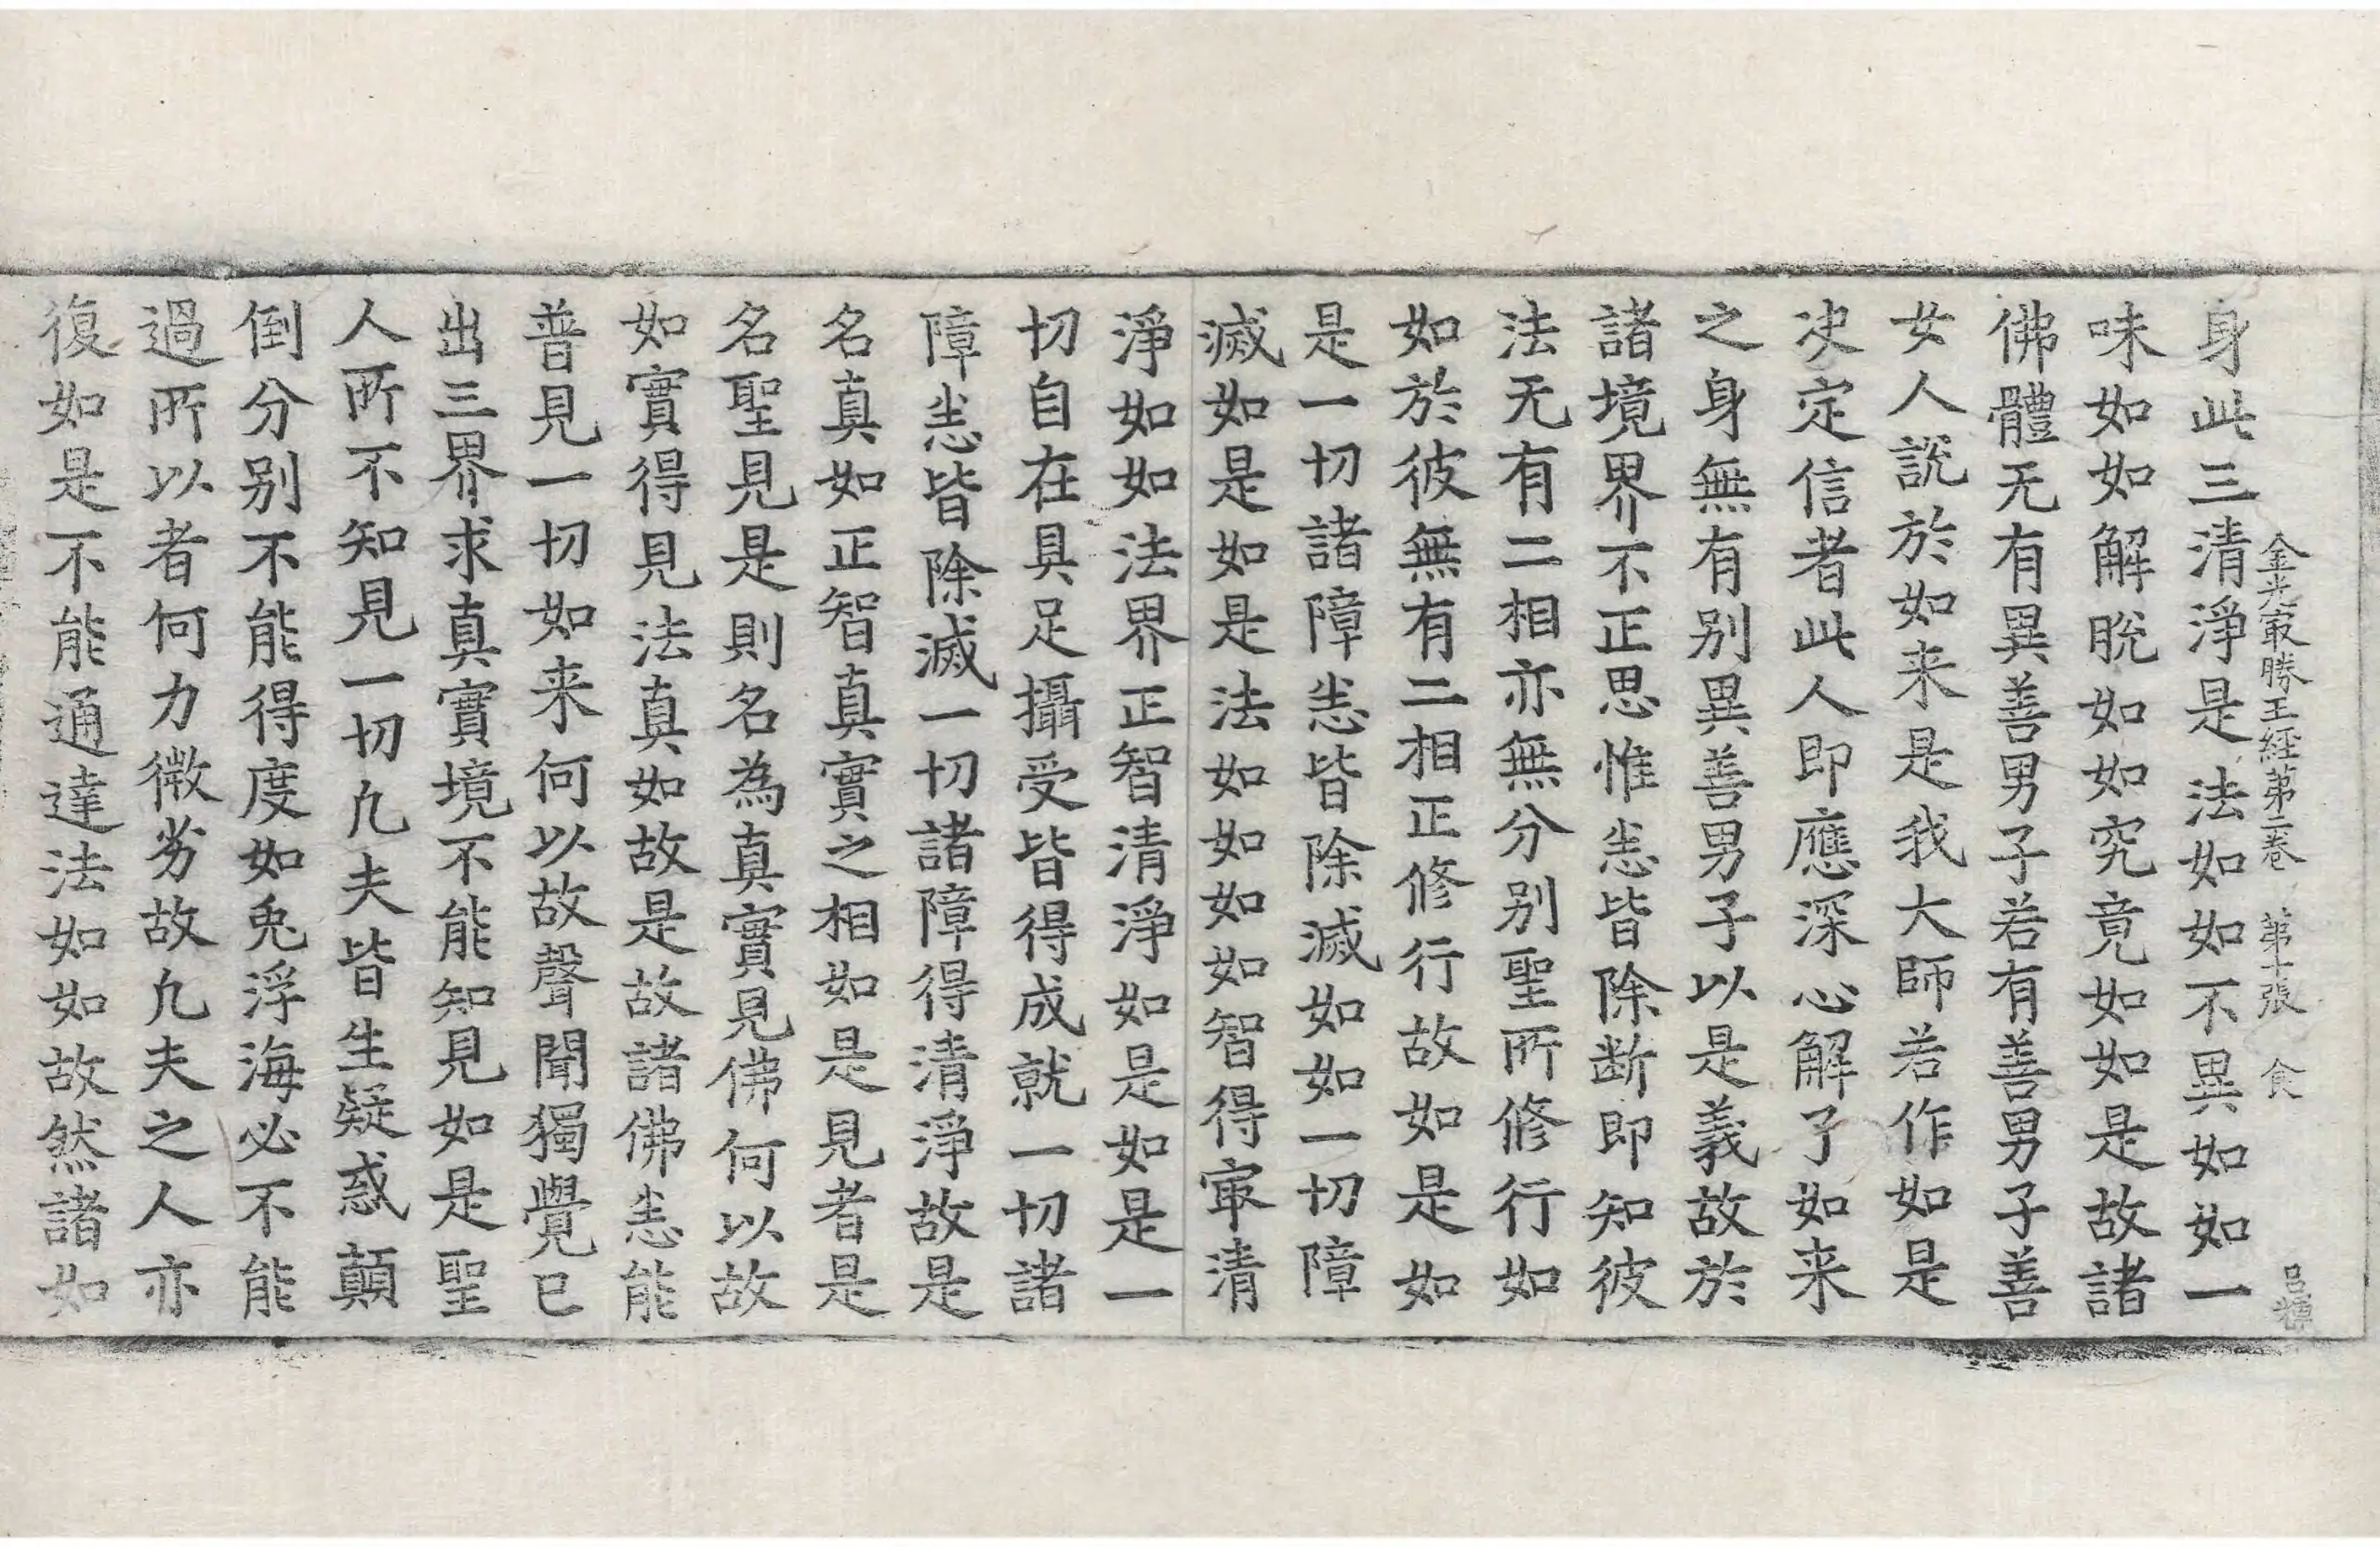 金光㝡勝王経苐二卷　苐十張　食　吕禋
身此三清淨是法如如不異如如一
味如如解脫如如究竟如如是故諸
佛體无有異善男子若有善男子善
女人說於如来是我大師若作如是
决定信者此人即應深心解了如来
之身無有别異善男子以是義故於
諸境界不正思惟悉皆除断即知彼
法无有二相亦無分别聖所修行如
如於彼無有二相正修行故如是如
是一切諸障悉皆除滅如如一切障
滅如是如是法如如如如智得㝡清
淨如如法界正智清淨如是如是一
切自在具足攝受皆得成就一切諸
障悉皆除滅一切諸障得清淨故是
名真如正智真實之相如是見者是
名聖見是則名為真實見佛何以故
如實得見法真如故是故諸佛悉能
普見一切如来何以故聲聞獨覺已
出三界求真實境不能知見如是聖
人所不知見一切凢夫皆生疑惑顛
倒分别不能得度如兎浮海必不能
過所以者何力微劣故凢夫之人亦
復如是不能通達法如如故然諸如